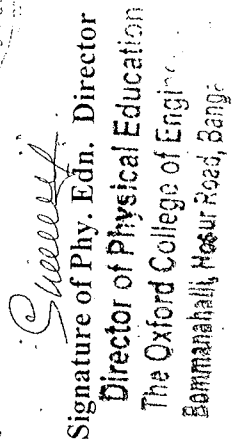 Signature of Phy. Edn. Director
Director of Physical Education
The Oxford College of Engi
Bommanahalli, Hosur Road, Bang